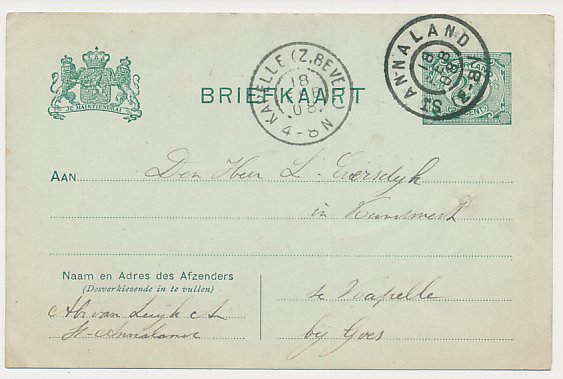 ST ANNALAND
KAPELLE (Z.BEVE
18
08
4-8N
JE MAINTIENDRAI
BRIEFKAART
AAN Den Heer L. Eversdijk
in Kunstmest
Naam en Adres des Afzenders
(Desverkiezende in te vullen)
te Kapelle
Abr van Luijk
St-Annaland
by Goes